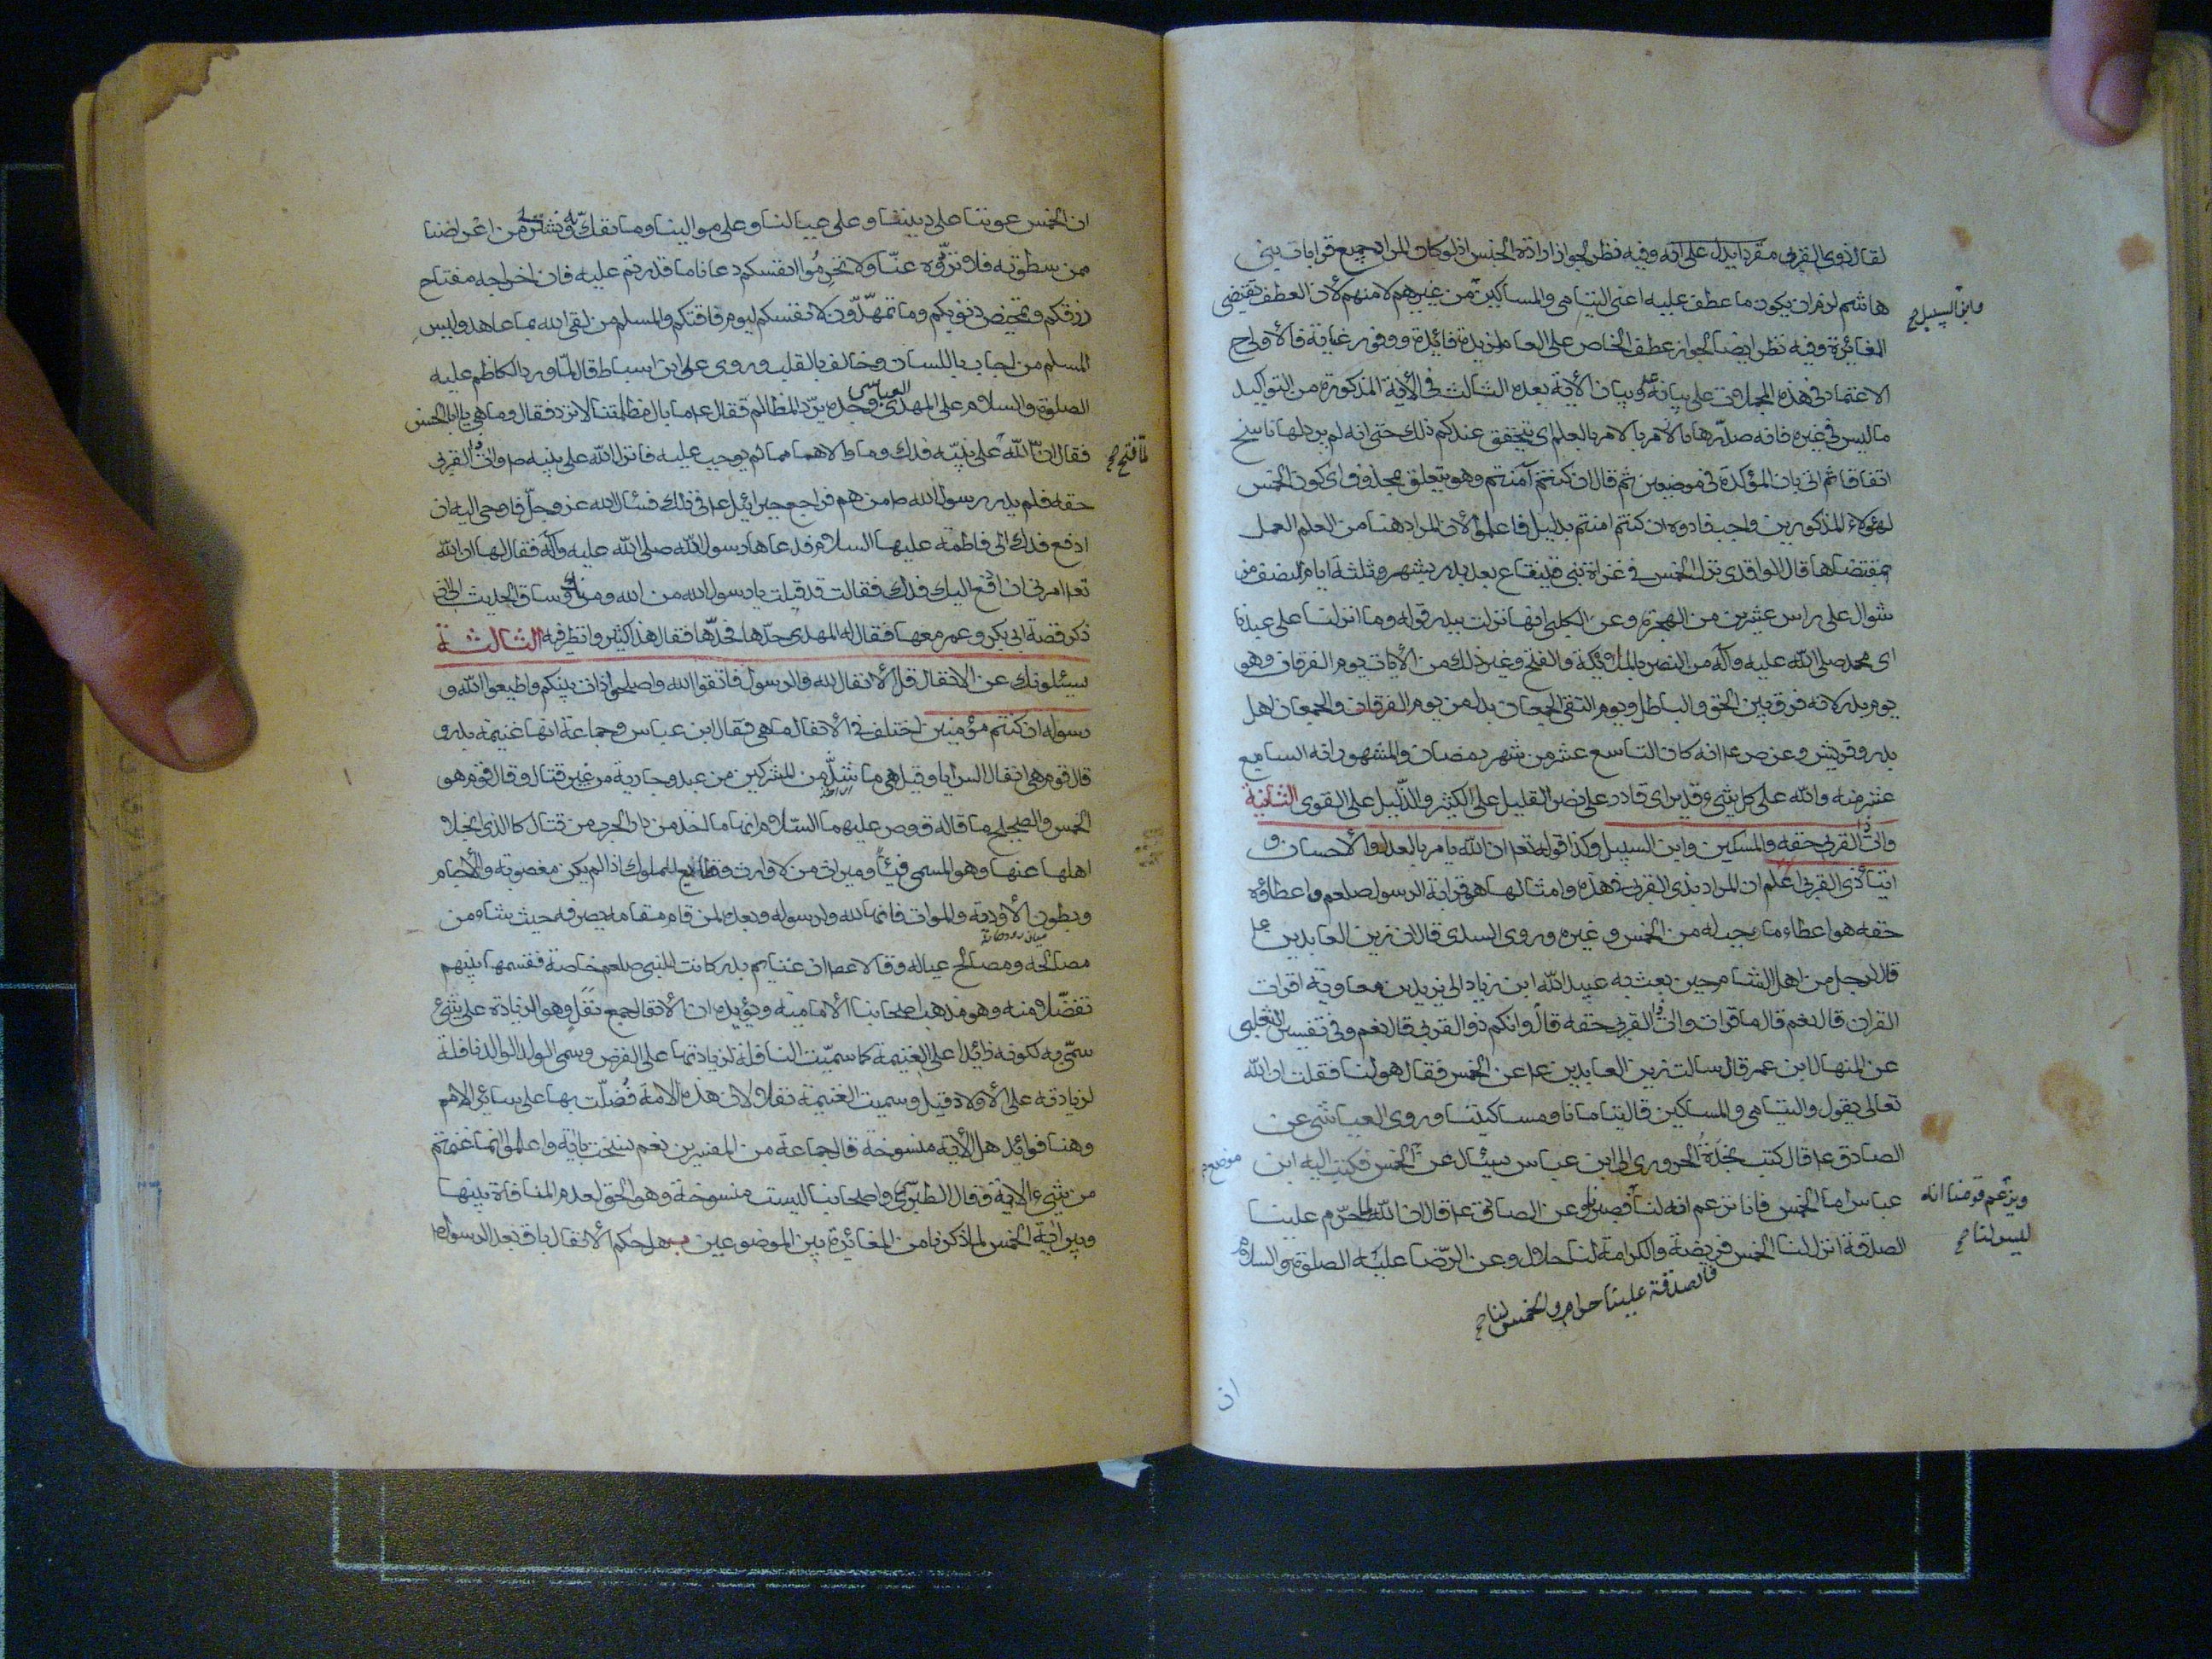 لقال ذوى القربى مفردا يدل على انه وفيه نظر لجواز ارادة الجنس اذ لو كان المراد جميع قرابات بنى
هاشم لزم ان يكون ما عطف عليه اعنى اليتامى والمساكين من غيرهم لا منهم لان العطف يقتضى
وابن السبيل صح
المغائرة وفيه نظر ايضا لجواز عطف الخاص على العام لمزيد فائدة ووفور عناية فالاولى ح
الاعتماد فى هذه المجملات على بيانه ع وبيان الأية بعده الثالث فى الأية المذكورة من التواكيد
ما ليس فى غيره فانه صدّرها بالامر بالعلم اى يتحقق عندكم ذلك حتى انه لم يرد لها ناسخ
اتفاقا ثم اتى بان المؤكدة فى موضعين ثم قال ان كنتم آمنتم وهو يتعلق بمحذوف اى كون الخمس
لهؤلاء المذكورين واجب فادوه ان كنتم امنتم بدليل فاعلموا لأن المراد هنا من العلم العمل
بمقتضاها قال الواقدى نزل الخمس فى غزاة بنى قينقاع بعد بدر بشهر وثلثة ايام للنصف من
شوال على راس عشرين من الهجرة وعن الكلبى انها نزلت ببدر قوله وما انزلنا على عبدنا
اى محمد صلى الله عليه وآله من النصر بالملائكة والفتح وغير ذلك من الأيات يوم الفرقان وهو
يوم بدر لانه فرق بين الحق والباطل ويوم التقى الجمعان بدل من يوم الفرقان والجمعان اهل
بدر وقريش وعن ص ع انه كان التاسع عشر من شهر رمضان والمشهور انه السابع
عشر منه والله على كل شئ قدير اى قادر على نصر القليل على الكثير والذليل على القوى الثانية
وات ذا القربى حقه والمسكين وابن السبيل وكذا قوله تعا ان الله يامر بالعدل والأحسان و
ايتاء ذى القربى اعلم ان المراد بذى القربى فى هذه وامثالها هو قرابة الرسول صلعم واعطاؤه
حقه هو اعطاء ما يجب له من الخمس وغيره وروى السدى قال ان زين العابدين ع
قال لرجل من اهل الشام حين بعث به عبيد الله ابن زياد الى يزيد بن معاوية اقرات
القران قال نعم قال ما قرات وات ذا القربى حقه قال وانكم ذو القربى قال نعم وفى تفسير الثعلبى
عن المنهال ابن عمر قال سالت زين العابدين ع عن الخمس فقال هو لنا فقلت ان الله
تعالى يقول واليتامى والمساكين قال يتامانا ومساكيننا وروى العياشى عن
الصادق ع قال كتب نجدة الحرورى الى ابن عباس سيئال عن الخمس فكتب اليه ابن
موضع
عباس اما الخمس فانا نزعم انه لنا فصبرنا وعن الصادق ع قال ان الله لما حرّم علينا
ويزعم قومنا انه
ليس لنا صح
الصدقة انزل لنا الخمس فريضة والكرامة لنا حلال وعن الرّضا عليه الصلوة والسلام
فالصدقة علينا حرام والخمس لنا صح
ان
ان الخمس عوننا على ديننا وعلى عيالنا وعلى موالينا وما نفك ونشترى من اعراضنا
ممن سطوته فلا تزووه عنّا ولا تحرموا انفسكم دعانا ما قدرتم عليه فان اخراجه مفتاح
رزقكم وتمحيص ذنوبكم وما تمهّدون لانفسكم ليوم فاقتكم والمسلم من لقى الله بما عاهد وليس
المسلم من اجاب باللسان وخالف بالقلب وروى على ابن اسباط قال لمّا ورد الكاظم عليه
الصلوة والسلام على المهدى العباسى وجده يردّ المظالم فقال ع ما بال مظلمتنا لا ترد فقال وما هى يا ابا الحسن
فقال ان الله على نبيّه فدك وما والاهما مما لم يوجب عليه فانزل الله على نبيه ص وات ذا القربى
لمّا فتح صح
حقه فلم يدر رسول الله ص من هم فراجع جبرائيل ع فى ذلك فسئال الله عز وجلّ فاوحى اليه ان
ادفع فدك الى فاطمة عليها السلام فدعاها رسول الله صلى الله عليه وآله فقال لها ان الله
تعا امرنى ان ادفع اليك فدك فقالت قد قبلت يا رسول الله من الله ومنك وساق الحديث الى ان
ذكر قصة ابى بكر وعمر معها فقال له المهدى حدّها فحدّها فقال هذا كثير وانظر فيه الثالثة
سيئلونك عن الانفال قل الأنفال لله والرسول فاتقوا الله واصلحوا ذات بينكم واطيعوا الله و
رسوله ان كنتم مؤمنين اختلف فى الأنفال ما هى فقال ابن عباس وجماعة انها غنيمة بدر و
قال قوم هى انفال السرايا وقيل هى ما شذّ من المشركين من عبد وجارية من غير قتال وقال قوم هو
الخمس والصحيح ما قاله ق وص عليهما السّلام انها ما اخذ من دار الحرب من قتال كالذى انجلا
اهلها عنها وهو المسمى فيئاً وميراث من لا وارث وقطايع الملوك اذا لم يكن مغصوبة والأجام
وبطون الأودية والموات فانها لله ولرسوله وبعده لمن قام مقامه يصرفه حيث يشاء من
مصالحه ومصالح عياله وقالا ع ان غنايم بدر كانت للنبى صلعم خاصة فقسمها بينهم
تفضّلا منه وهو مذهب اصحابنا الأمامية ويؤيده ان الأنفال جمع نفل وهو الزيادة على شئ
سمّى به لكونه زائدا على الغنيمة كما سمّيت النافلة لزيادتها على الفرض وسمى الولد الوالد نافلة
لزيادته على الأولاد قيل وسميت الغنيمة نفلا لان هذه الامة فُضّلت بها على سائر الامم
وهنا فوائد هل الأية منسوخة قال جماعة من المفسرين نعم نسخت باية واعلموا انما غنمتم
من شئ الاية وقال الطبرى واصحابنا ليست منسوخة وهو الحق لعدم المنافاة بينها
وبين اية الخمس لما ذكرنا من المغائرة بين الموضوعين ب هل حكم الأنفال باق بعد الرسول ص